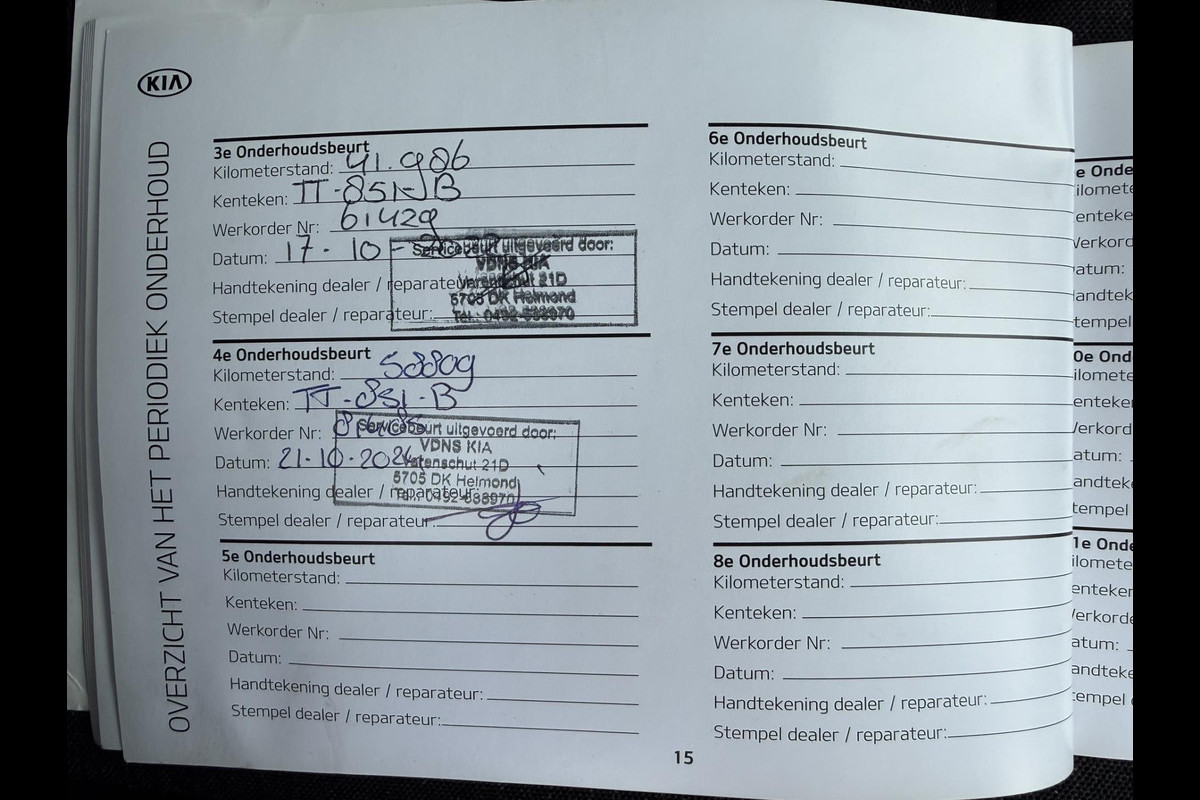 KIA
OVERZICHT VAN HET PERIODIEK ONDERHOUD
3e Onderhoudsbeurt
Kilometerstand: 41.986
Kenteken: TT-851-B
Werkorder Nr: 61429
Datum: 17-10-
Handtekening dealer / reparateur:
Stempel dealer / reparateur:
Servicebeurt uitgevoerd door:
VDNS KIA
Varenschut 21D
5705 DK Helmond
Tel.: 0492-538970
4e Onderhoudsbeurt
Kilometerstand: 58809
Kenteken: TT-851-B
Werkorder Nr:
Datum: 21-10-2024
Handtekening dealer / reparateur:
Stempel dealer / reparateur:
Servicebeurt uitgevoerd door:
VDNS KIA
Varenschut 21D
5705 DK Helmond
Tel.: 0492-538970
5e Onderhoudsbeurt
Kilometerstand:
Kenteken:
Werkorder Nr:
Datum:
Handtekening dealer / reparateur:
Stempel dealer / reparateur:
6e Onderhoudsbeurt
Kilometerstand:
Kenteken:
Werkorder Nr:
Datum:
Handtekening dealer / reparateur:
Stempel dealer / reparateur:
7e Onderhoudsbeurt
Kilometerstand:
Kenteken:
Werkorder Nr:
Datum:
Handtekening dealer / reparateur:
Stempel dealer / reparateur:
8e Onderhoudsbeurt
Kilometerstand:
Kenteken:
Werkorder Nr:
Datum:
Handtekening dealer / reparateur:
Stempel dealer / reparateur:
15
e Onde
ilomete
enteke
Verkord
atum:
andtek
tempel
0e Ond
ilomete
enteke
Verkord
atum:
andtek
tempel
1e Ond
ilomete
enteker
Verkord
atum:
andteke
tempel